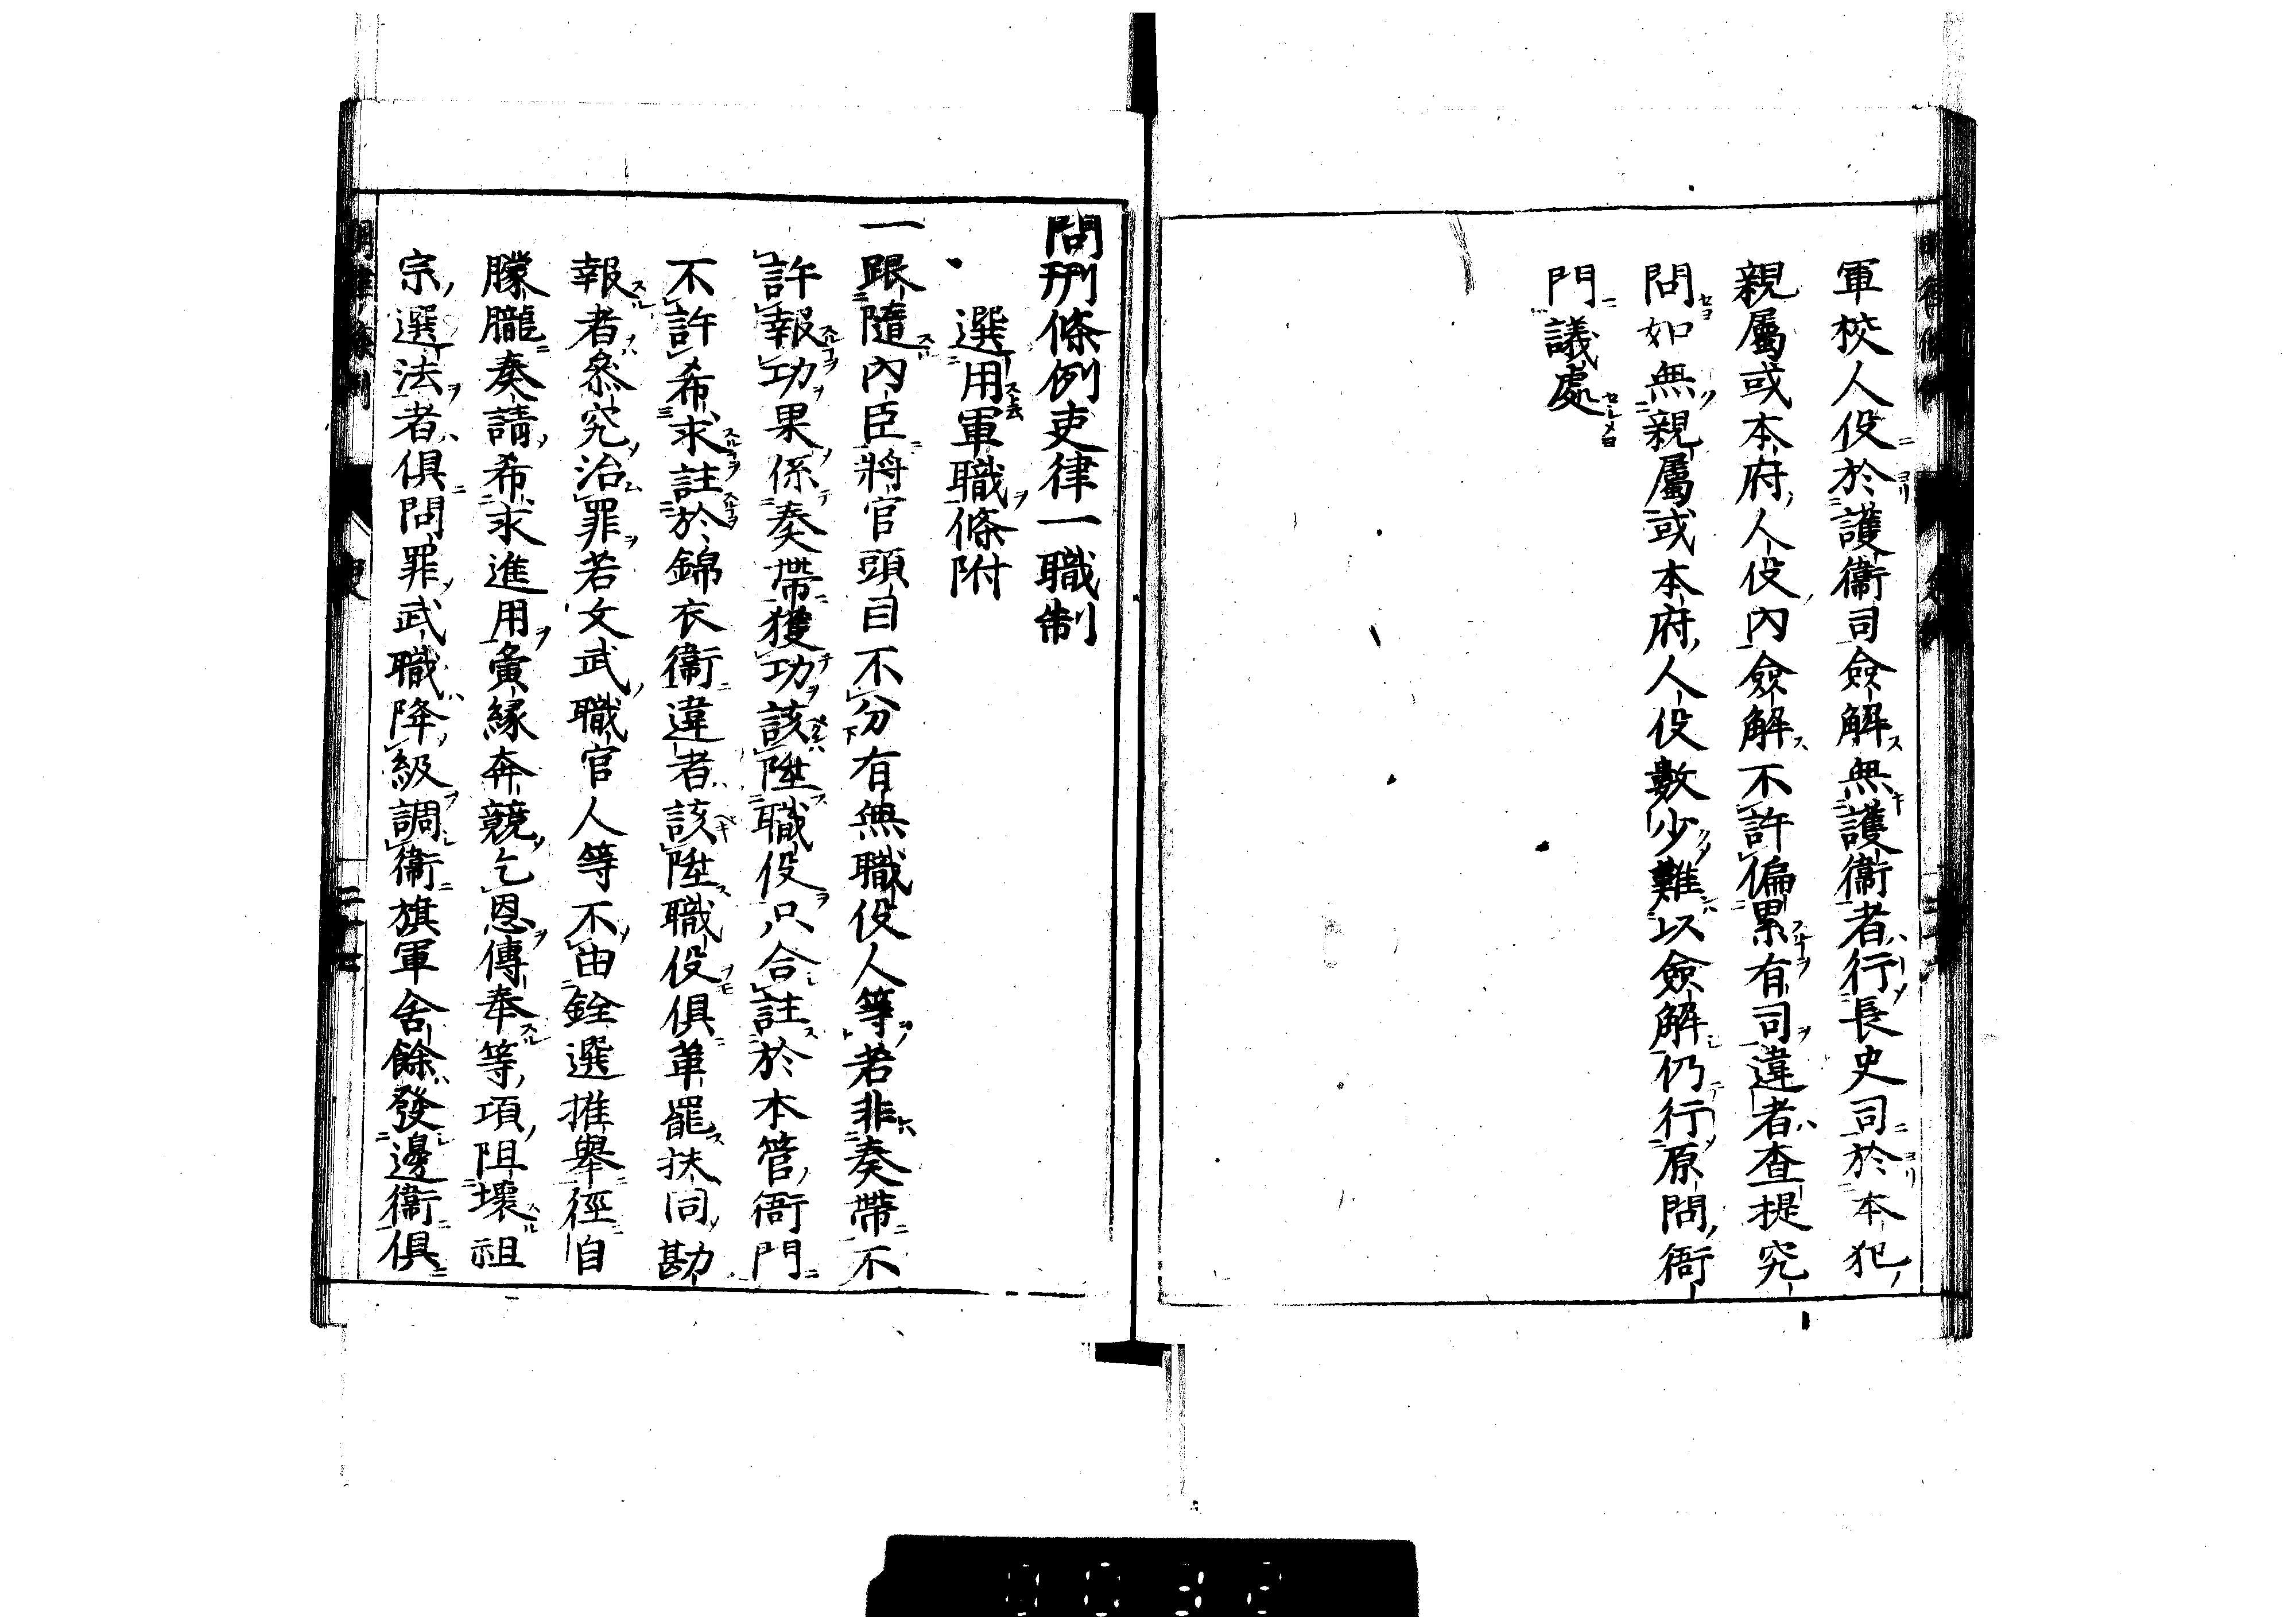 軍校人役於護衞司僉解無護衞者行長史司於本犯
親屬或本府人役內僉解不許偏累有司違者查提究
問如無親屬或本府人役數少難以僉解仍行原問衙
門議處
問刑條例吏律一職制
選用軍職條附
一跟隨內臣將官頭目不分有無職役人等若非奏帶不
許報功果係奏帶獲功該陞職役只合註於本管衙門
不許希求註於錦衣衞違者該陞職役俱革罷扶同勘
報者叅究治罪若文武職官人等不由銓選推舉徑自
朦朧奏請希求進用夤緣奔競乞恩傳奉等項阻壞祖
宗選法者俱問罪武職降級調衞旗軍舍餘發邊衞俱